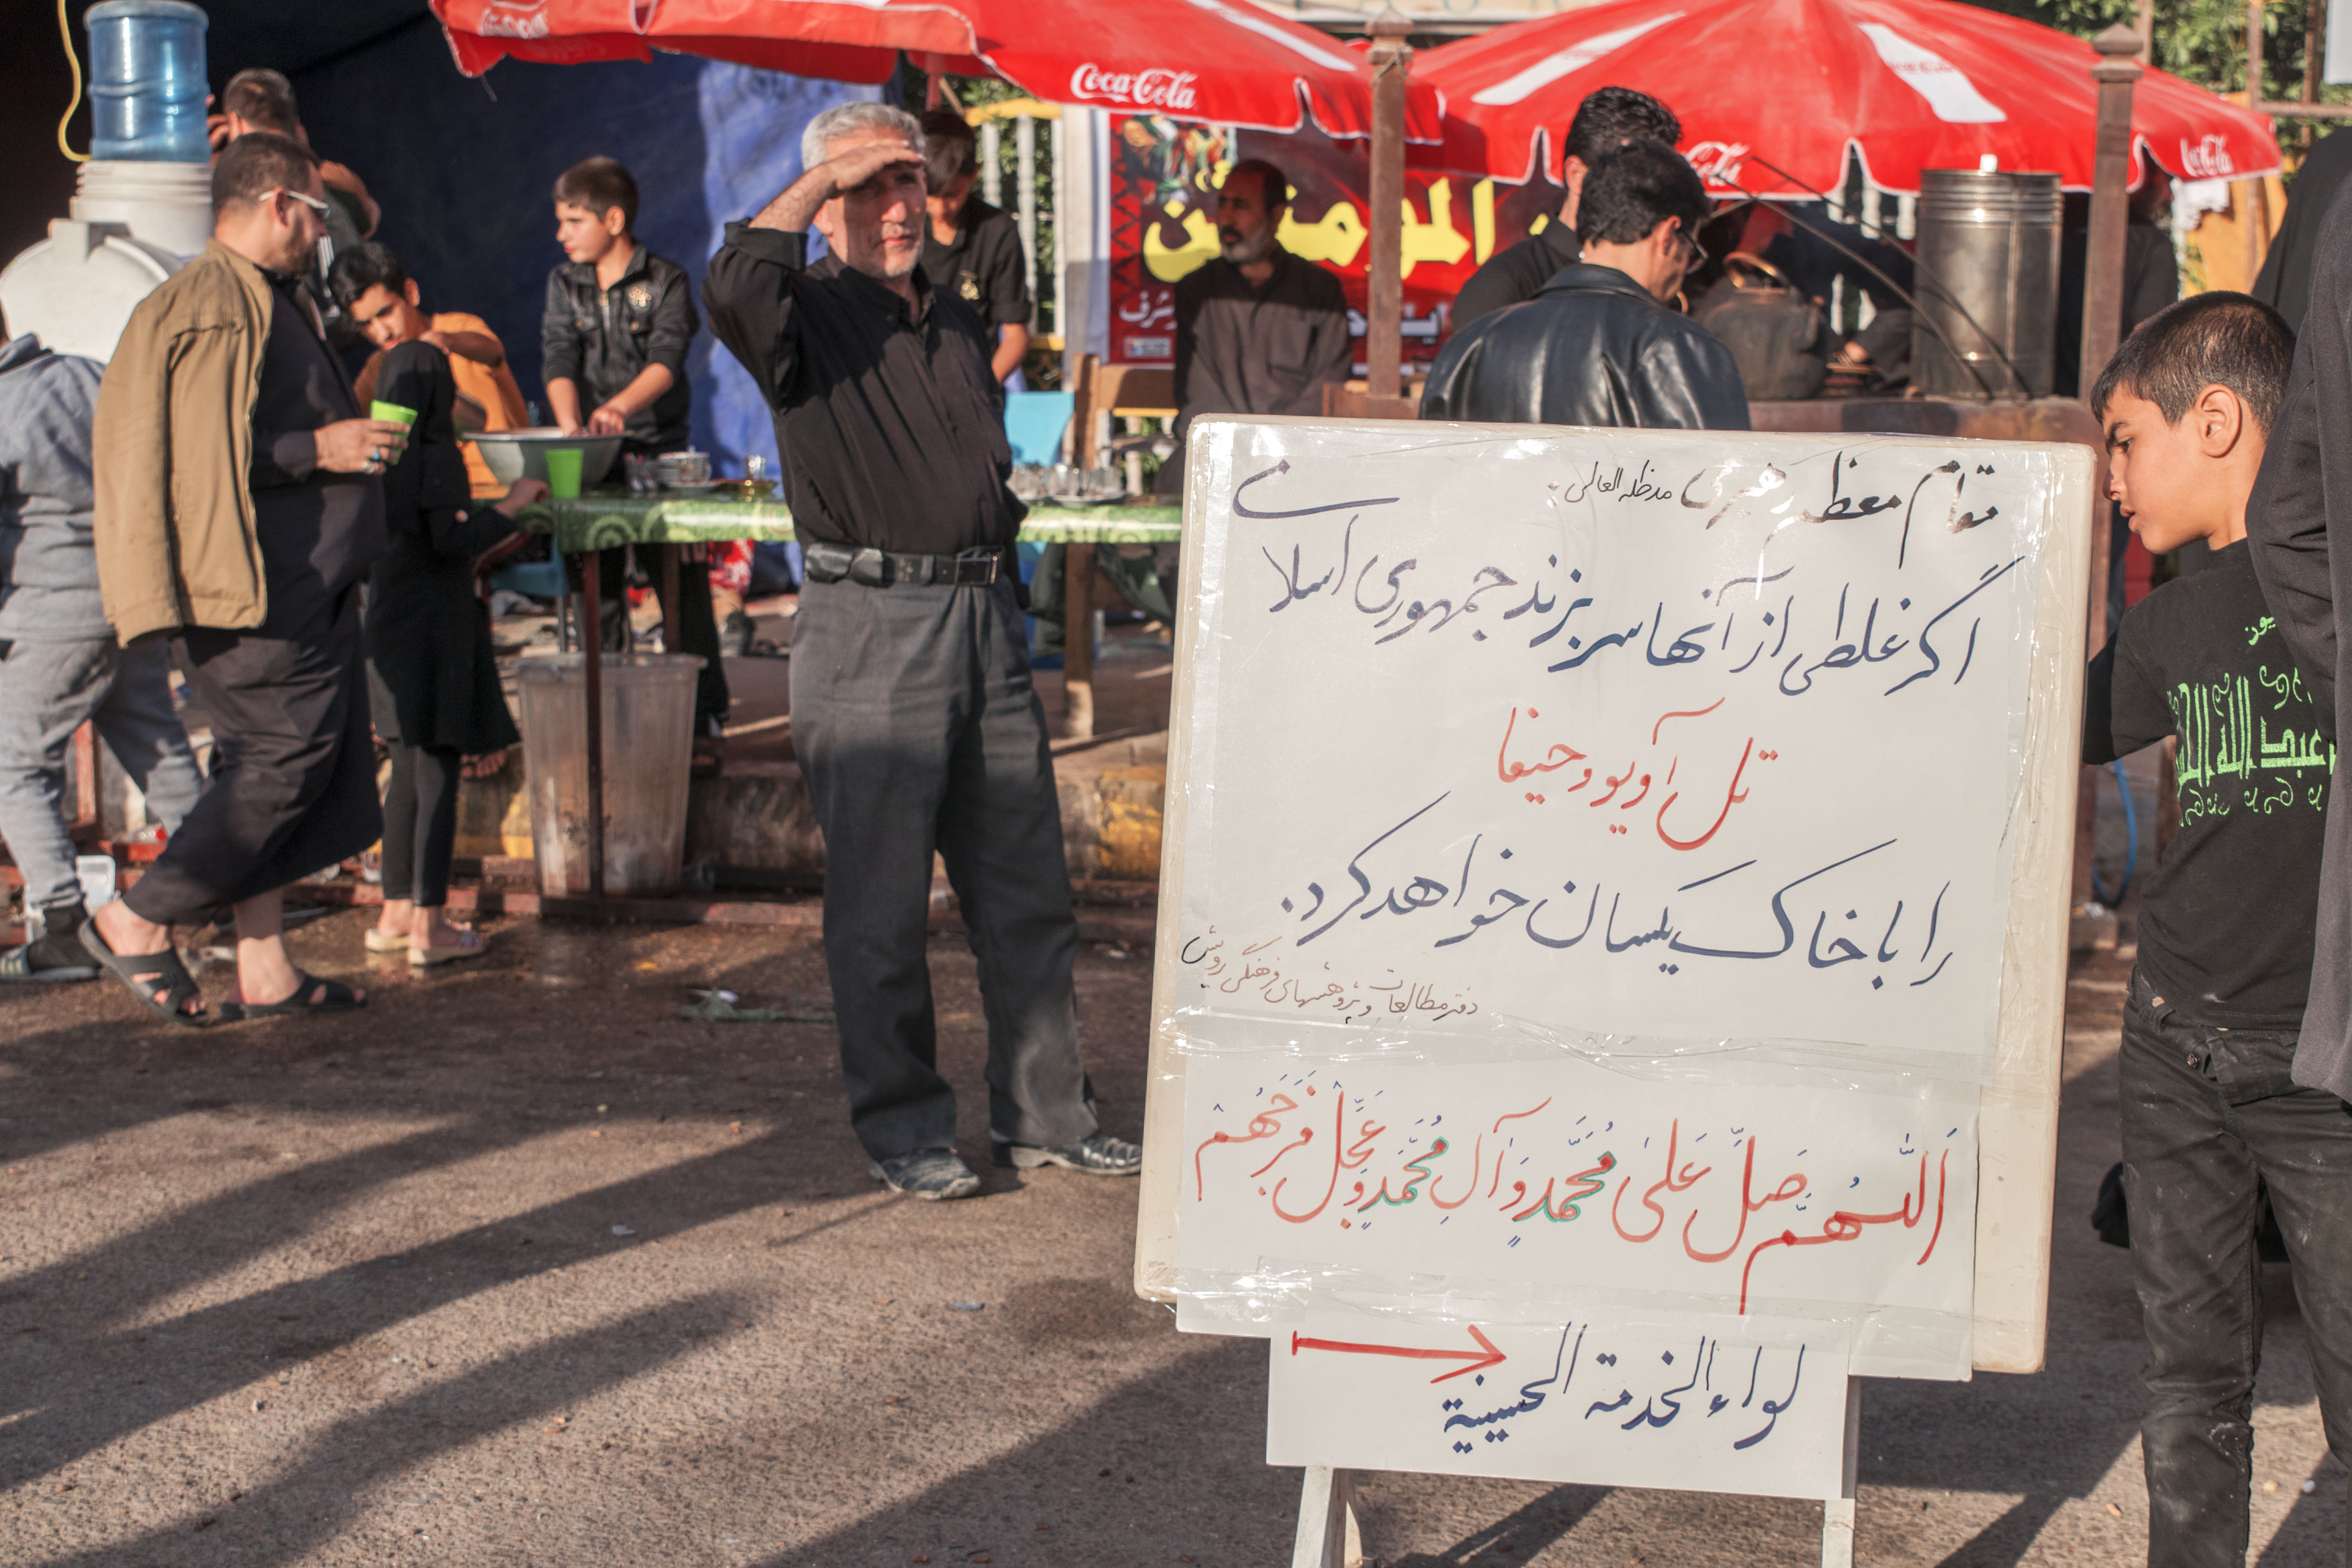 Coca-Cola
Coca-Cola
Coca-Cola
المؤمنين
مقام معظم رهبری مدظله العالی:
اگر غلطی از آنها سر بزند جمهوری اسلامی
تل آویو و حیفا
را با خاک یکسان خواهد کرد.
دفتر مطالعات و پژوهشهای فرهنگی رویش
اَللّهُمَّ صَلِّ عَلىٰ مُحَمَّدٍ وَآلِ مُحَمَّدٍ وَعَجِّلْ فَرَجَهُمْ
لواء الخدمة الحسينية
عبد الله